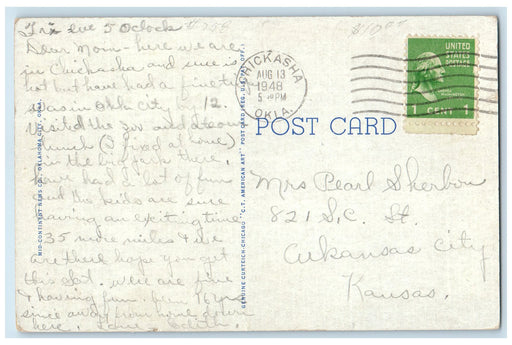 Fri eve 5 Oclock
Dear Mom - here we are
in Chickasha and sure is
hot but have had a fine trip
was in Okla City 12.
Visited the zoo and
lunch (I fixed at home)
in the big park there,
have had a lot of fun
and the kids are sure
having an exciting time
35 more miles & we
are there hope you get
this Sat. were are fine
& having fun.
since away from home down
here. Love, Edith.
MID-CONTINENT NEWS CO., OKLAHOMA CITY, OKLA.
GENUINE CURTEICH-CHICAGO "C.T. AMERICAN ART" POST CARD (REG. U.S. PAT. OFF.)
CHICKASHA
AUG 13
1948
PM
OKLA.
UNITED
STATES
POSTAGE
1 CENT 1
POST CARD
Mrs Pearl Sherbon
821 S, C. St.
Arkansas City
Kansas.